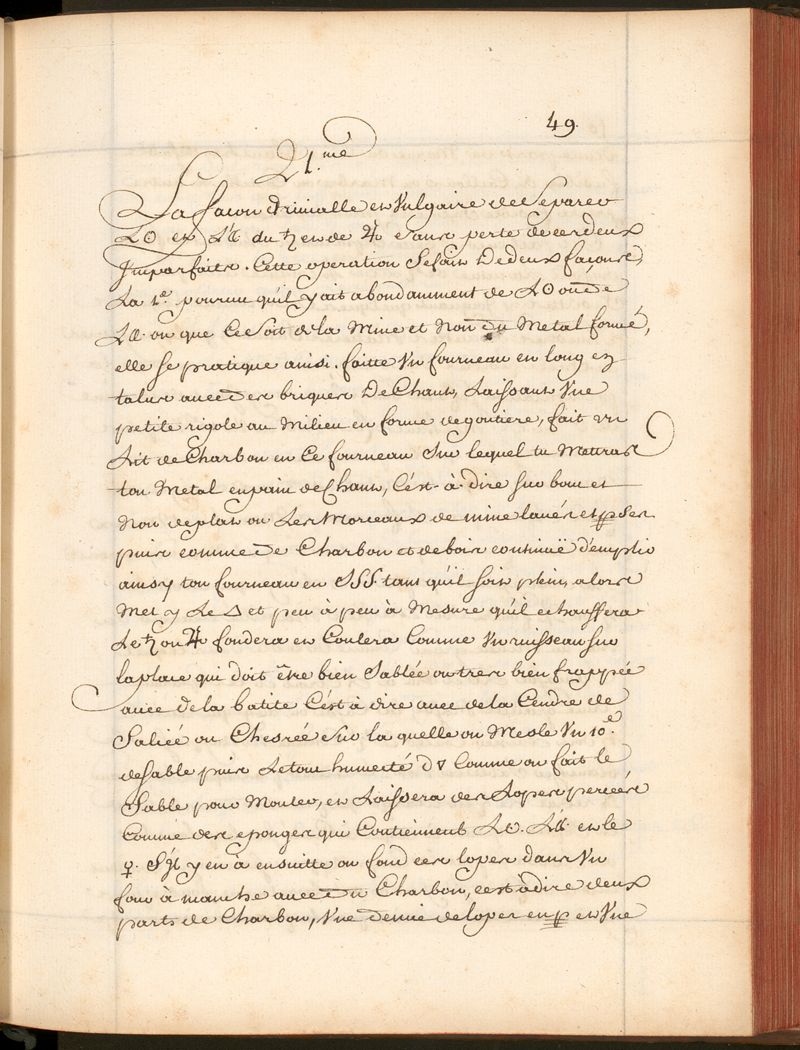 49.
21.me
La facon trivialle et Vulgaire de Separer
L☉ et L☾ du ♄ et de ♃ Sans perte de ces deux
Imparfaits. Cette operation Se fait De deux façons,
La 1e. pourvu qu'il y ait abondamment de L☉ ou de
L☾. ou que Ce Soit de la Mine et Non du Metal formé,
elle se pratique ainsi. faitte Un fourneau en long et
talus avec des briques De Chant, Laissant Une
petite rigole au Milieu en forme de goutiere, fait un
Lit de Charbon en Ce fourneau Sur lequel tu Mettras
ton Metal en pain de Chant, C'est-à-dire sur bout et
Non de plat ou Les Morceaux de mine lavés et
puis comme De Charbon et de bois continuë d'emplir
ainsy ton fourneau en SSS tant qu'il soit plein, alors
Met y Le △ et peu à peu à Mesure qu'il echauffera
Le ♄ ou ♃ fondera et Coulera Comme Un ruisseau sur
la place qui doit être bien Sablée ou tres bien frappée
avec de la batite C'est à dire avec de la Cendre de
Saliée ou Chesrée Sur la quelle on Mesle Un 10e.
de Sable puis Le tout humecté d'▽ Comme on fait le
Sable pour Mouler, et Laissera des Lopes percées
Comme des eponges qui Contiennent L☉. L☾ et le
♀. S'Il y en à ensuitte on fond ces lopes dans Un
four à manche avec du Charbon, c'est à dire deux
parts de Charbon, Une demie de lopes et Une